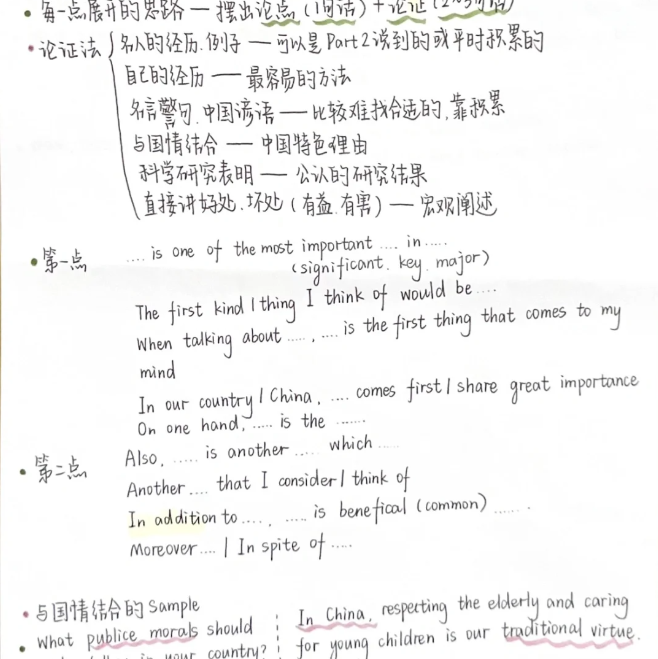 • 每一点展开的思路 — 摆出论点 (1句话) + 论证 (2~3句话)
• 论证法 { 名人的经历.例子 — 可以是 Part 2 说到的或平时积累的
自己的经历 — 最容易的方法
名言警句.中国谚语 — 比较难找合适的,靠积累
与国情结合 — 中国特色理由
科学研究表明 — 公认的研究结果
直接讲好处.坏处 (有益.有害) — 宏观阐述
• 第一点 .... is one of the most important .... in .....
(significant. key. major)
The first kind / thing I think of would be ....
When talking about ..... , .... is the first thing that comes to my
mind
In our country / China, .... comes first / share great importance
On one hand, ..... is the .......
• 第二点 Also, ..... is another .... which ....
Another .... that I consider / think of
In addition to .... , ..... is benefical (common) ......
Moreover .... / In spite of .....
• 与国情结合的 Sample
• What publice morals should
your country?
In China, respecting the elderly and caring
for young children is our traditional virtue.